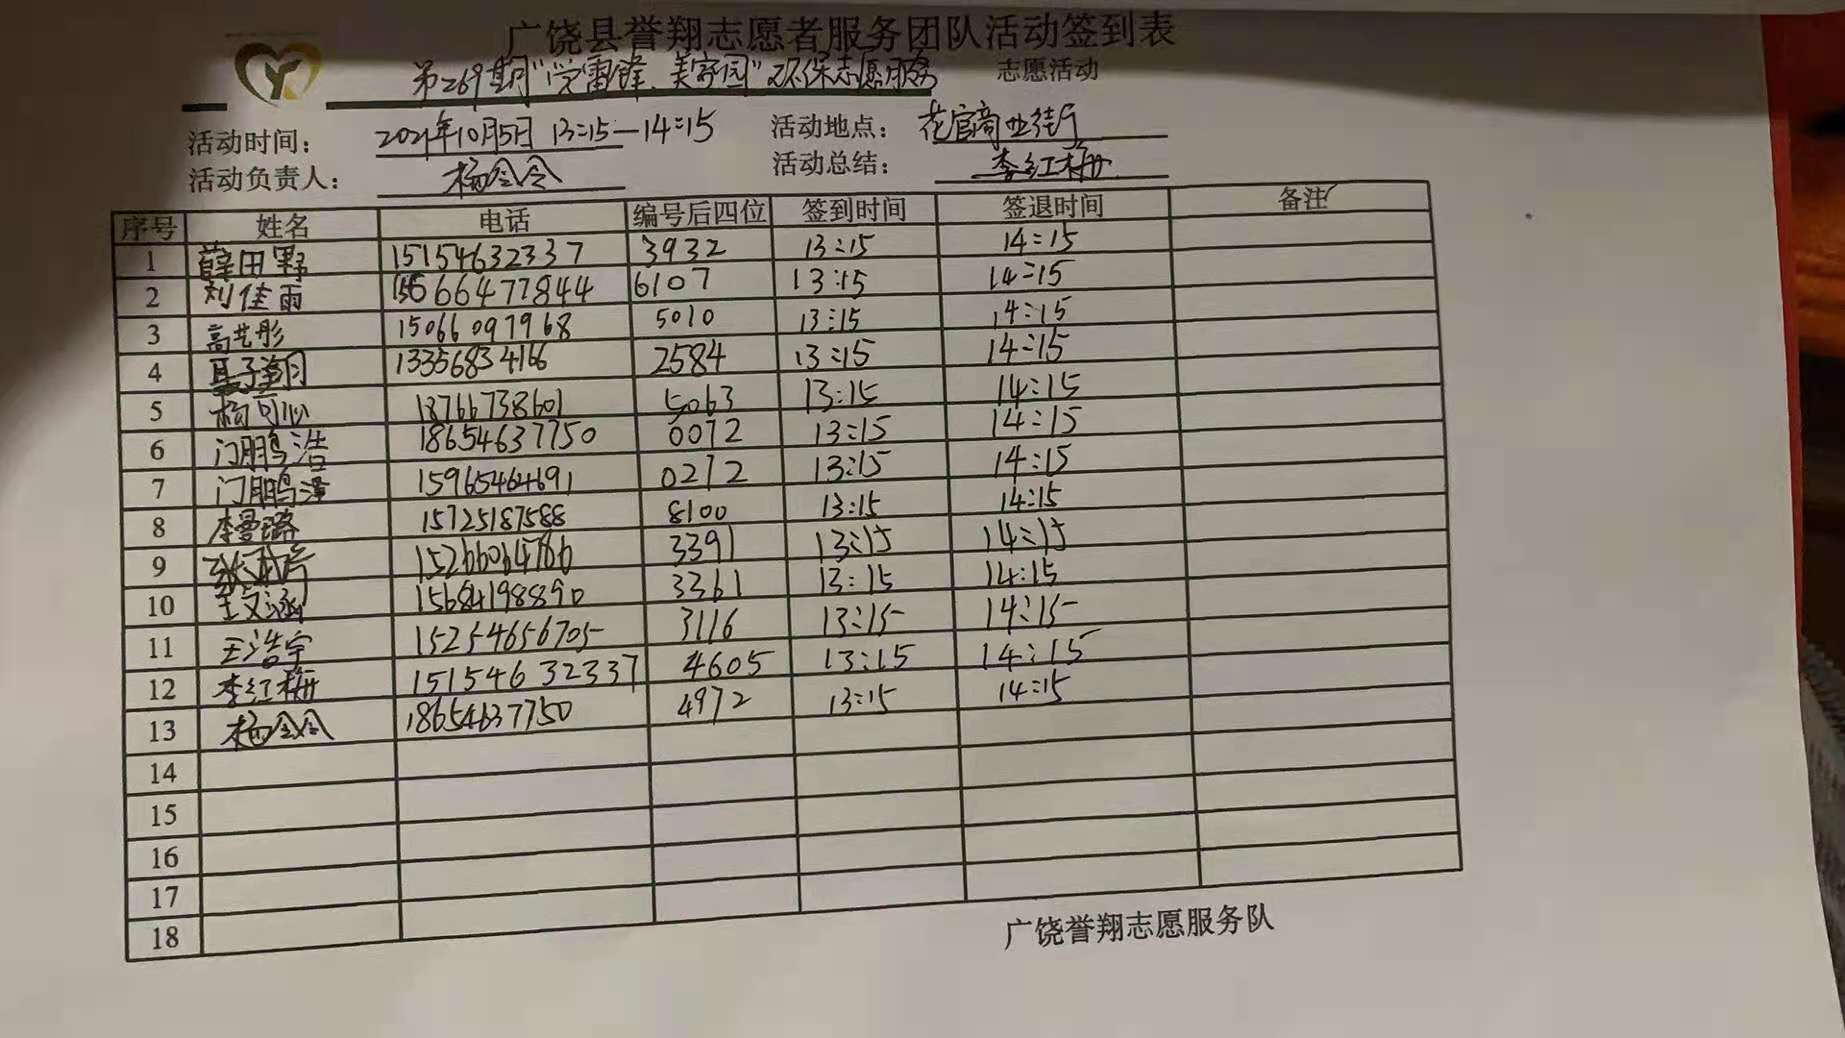 广饶县誉翔志愿者服务团队活动签到表
第269期"学雷锋、美家园"环保志愿服务 志愿活动
活动时间： 2021年10月5日 13:15—14:15 活动地点： 花官商业街
活动负责人： 杨令令 活动总结： 李红梅
序号 姓名 电话 编号后四位 签到时间 签退时间 备注
1 薛田野 15154632337 3932 13:15 14:15
2 刘佳雨 15666477844 6107 13:15 14:15
3 高艺彤 15066097968 5010 13:15 14:15
4 聂子翔 13356834166 2584 13:15 14:15
5 杨可心 18766738601 5063 13:15 14:15
6 门鹏浩 18654637750 0072 13:15 14:15
7 门鹏潭 15965464691 0272 13:15 14:15
8 李曼璐 15725187588 8100 13:15 14:15
9 15266064766 3391 13:15 14:15
10 王文涵 15684198890 3361 13:15 14:15
11 王浩宇 15254656705 3116 13:15 14:15
12 李红梅 15154632337 4605 13:15 14:15
13 杨令令 18654637750 4972 13:15 14:15
14
15
16
17
18
广饶誉翔志愿服务队